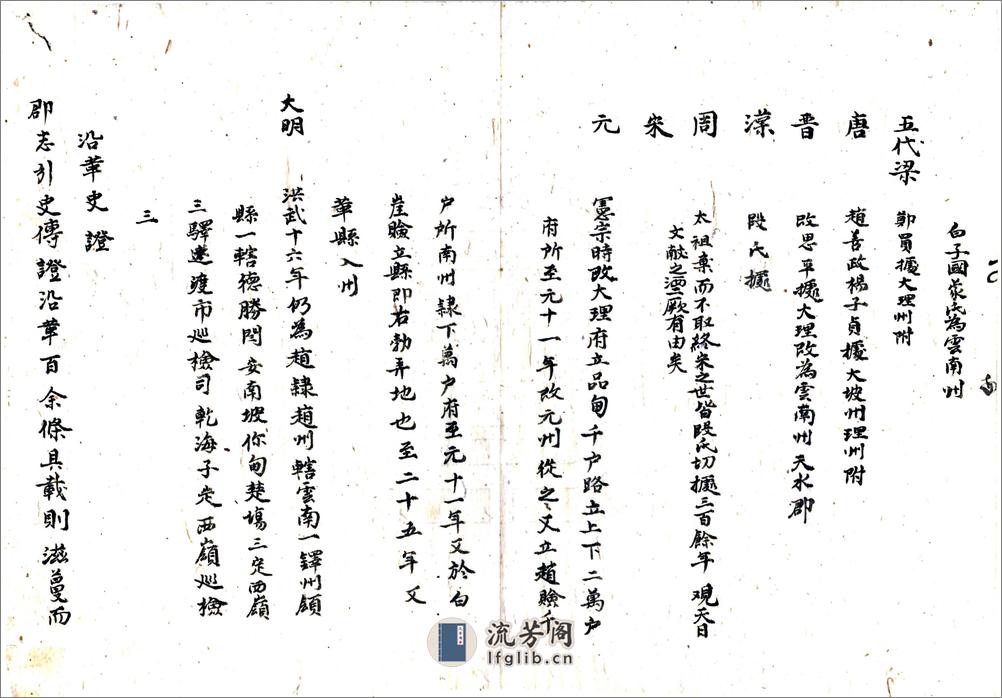 白子國蒙氏為雲南州
五代梁 鄭買據大理州附
唐 趙善政楊子貞據大坡州理州附
晋 改思平擾大理改為雲南州天水郡
漢 段氏擾
周
宋 太祖棄而不取終宋之世皆段氏切擾三百餘年 观天日
文献之湮厥有由矣
元 憲宗時改大理府立品甸千户路立上下二萬户
府所至元十一年改元州從之又立趙瞼千
户所南州隷下萬户府至元十一年又於白
崖瞼立縣即右勃弄地也至二十五年又
革縣入州
大明 洪武十六年仍為趙隷趙州轄雲南一鐸州領
縣一轄德勝関安南坡你甸楚場三定西嶺
三驛遷渡市巡檢司乾海子定西嶺巡檢
三
沿革史證
郡志引史傳證沿革百余條具載則滋蔓而
流芳阁
lfglib.cn